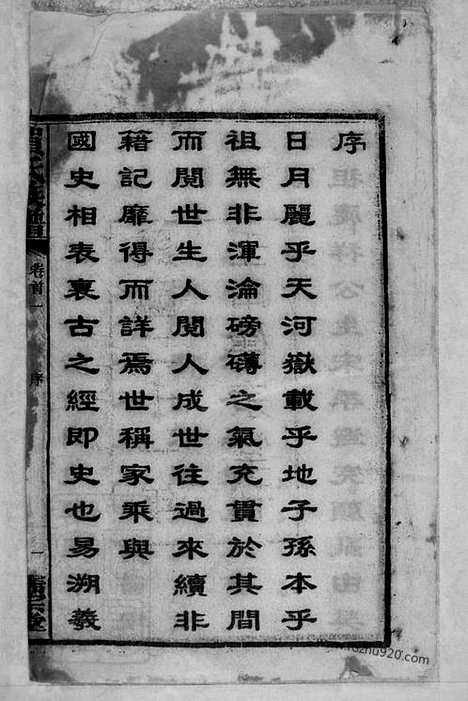 序
日月麗乎天河嶽載乎地子孫本乎
祖無非渾淪磅礴之氣充貫於其間
而閱世生人閱人成世往過來續非
籍記靡得而詳焉世稱家乘與
國史相表裏古之經即史也易溯羲
卷首一
序
一
www.yuzhu920.com